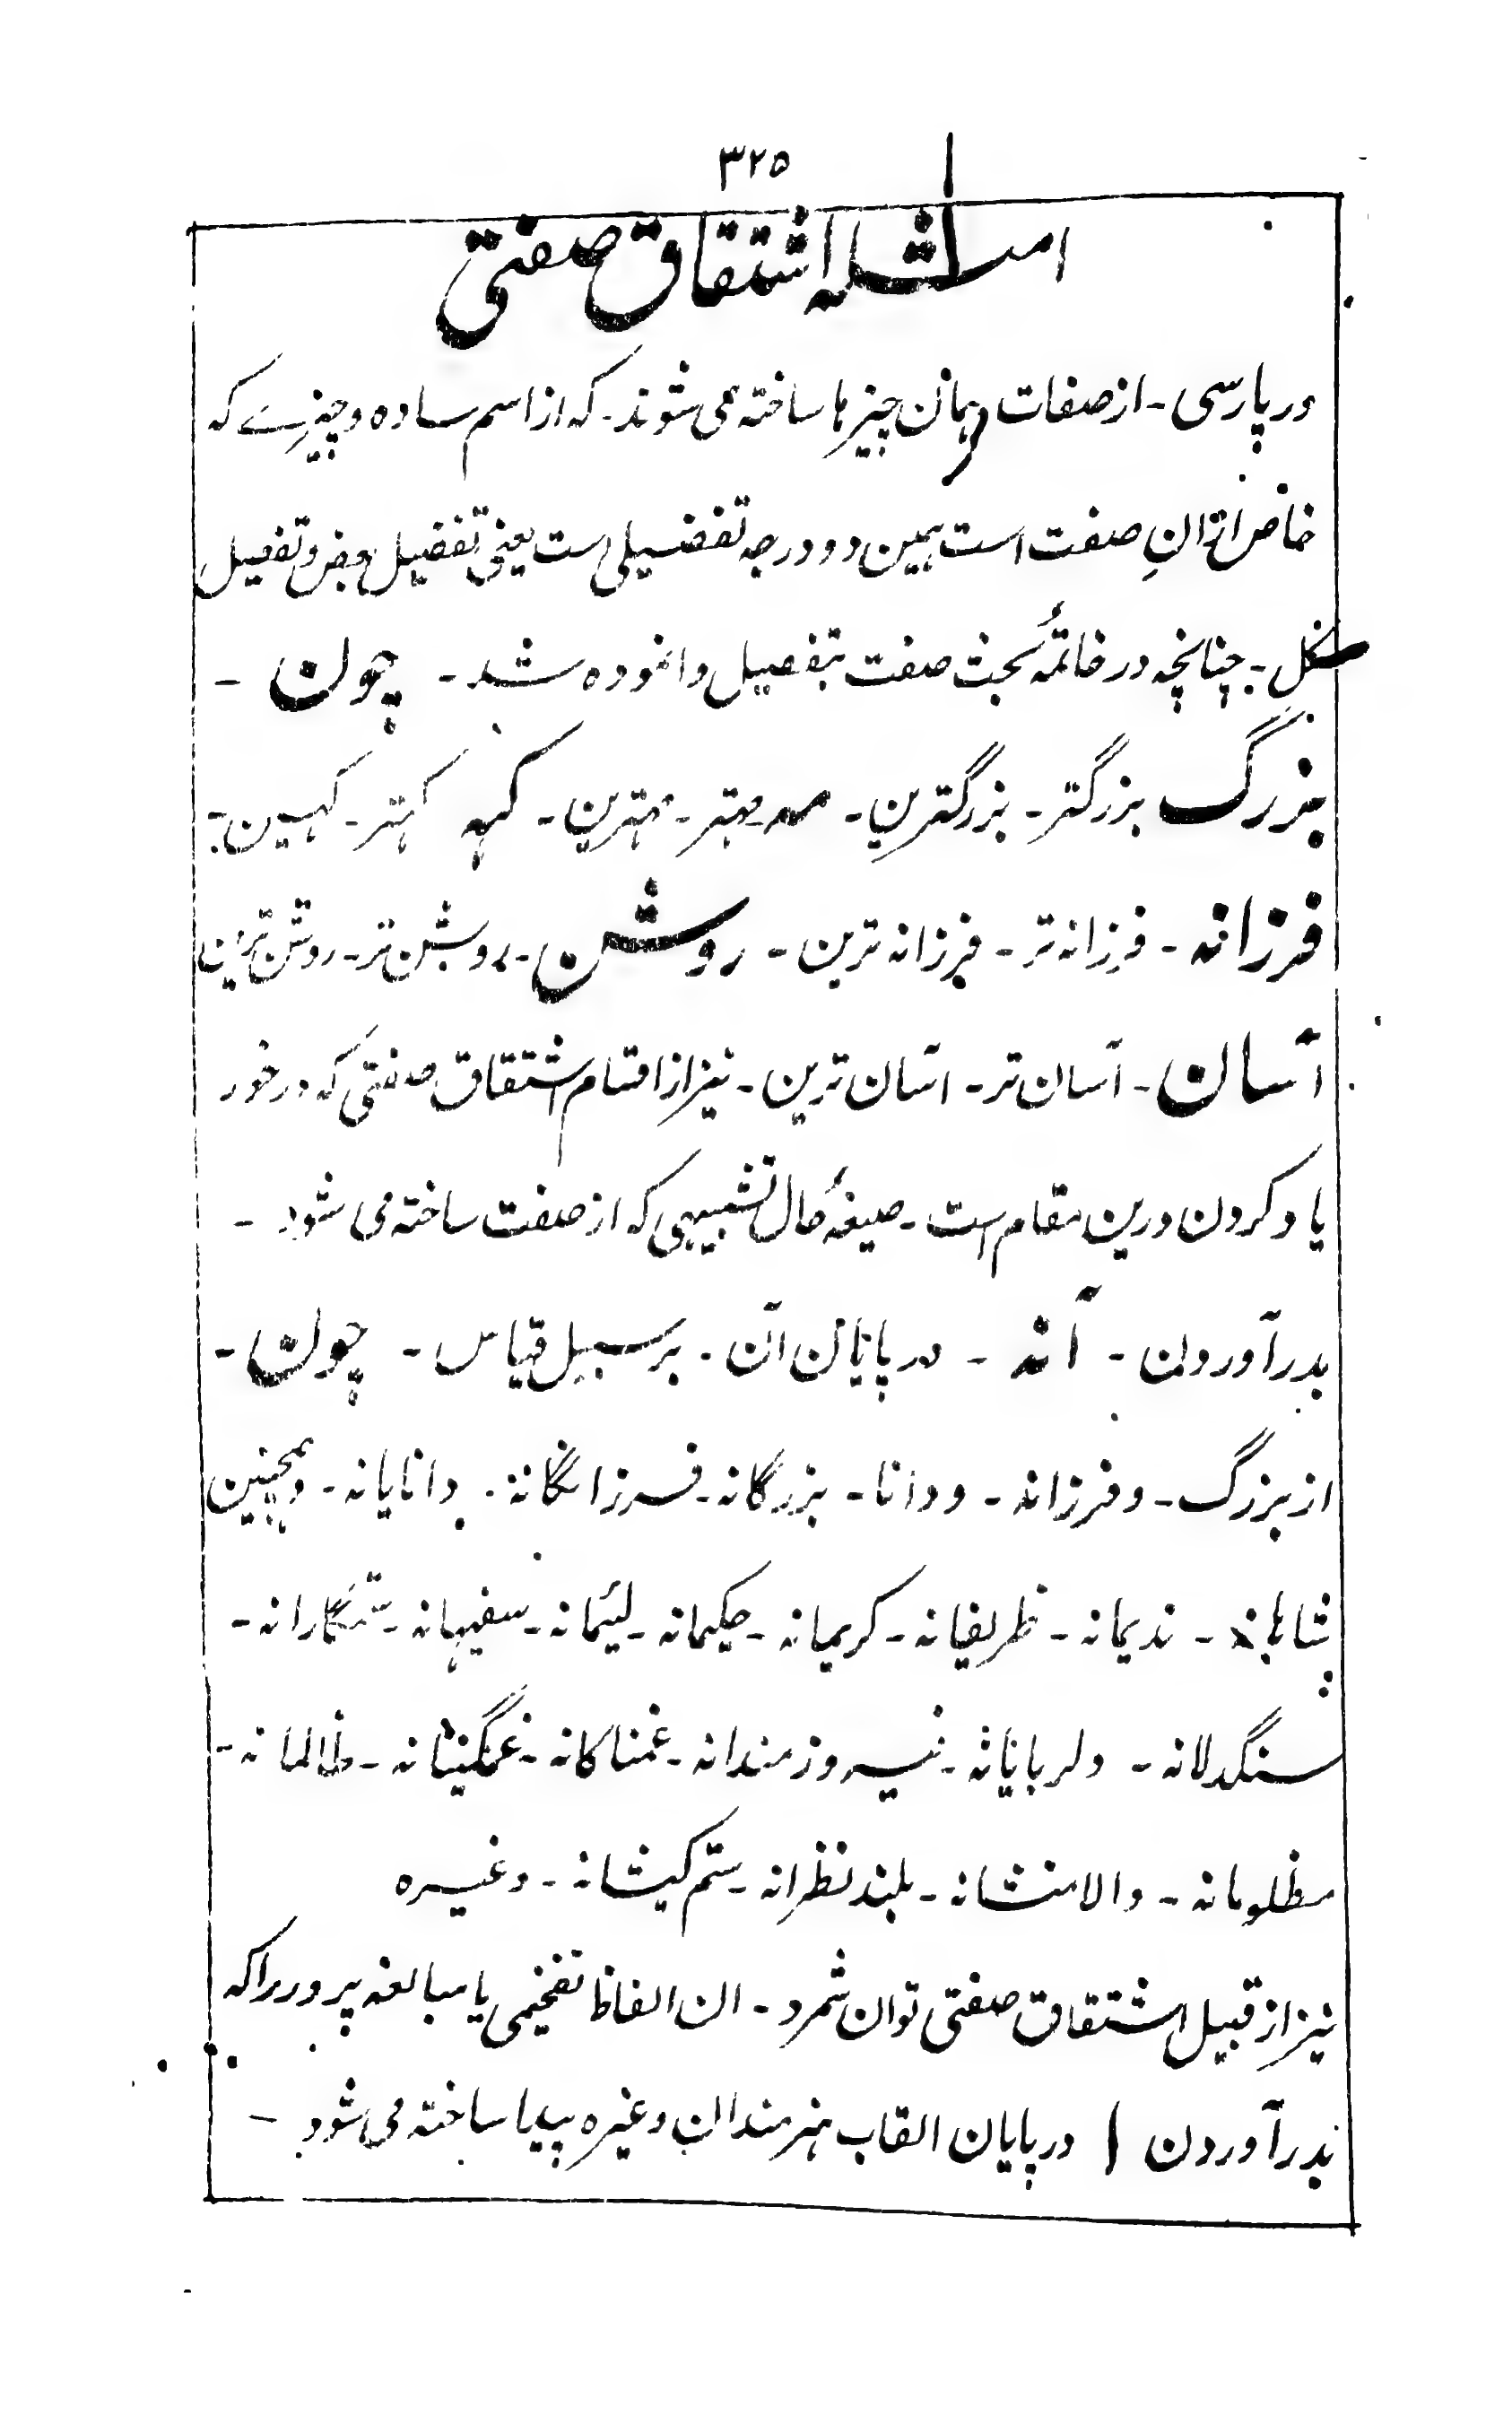 ۳۲۵
امثله اشتقاق صفتی
در پارسی - از صفات همان چیزها ساخته می شوند - که از اسم ساده و چیزے که
خاص از انِ صفت است همین دو درجه تفضیلی ست یعنی تفضیل بعض و تفضیل
کل - چنانچه در خاتمهٔ بحث صفت بتفصیل وانموده شد - چون -
بزرگ بزرگتر - بزرگترین - مه - مهتر - مهترین - که کهتر - کهین -
فرزانه - فرزانه تر - فرزانه ترین - روشن - روشن تر - روشن ترین
آسان - آسان تر - آسان ترین - نیز از اقسام اشتقاق صفتی که در خور
یاد کردن درین مقام است - صیغهٔ حال تشبیهی که از صفت ساخته می شود -
بدر آوردن - آنه - در پایان آن - بر سبیل قیاس - چون -
از بزرگ - و فرزانه - و دانا - بزرگانه - فرزانگانه - دانایانه - و همچنین
شاهانه - ندیمانه - ظریفانه - کریمانه - حکیمانه - لئیمانه - سفیهانه - ستمگارانه -
سنگدلانه - دلربایانه - فیروزمندانه - غمناکانه - غمگینانه - ظالمانه -
مظلومانه - والامنشانه - بلند نظرانه - ستم کیشانه - وغیره
نیز از قبیل اشتقاق صفتی توان شمرد - ان الفاظ تفخیمی یا مبالغه پرور را که
بدر آوردن ا در پایان القاب هنرمندان وغیره پیدا ساخته می شود -